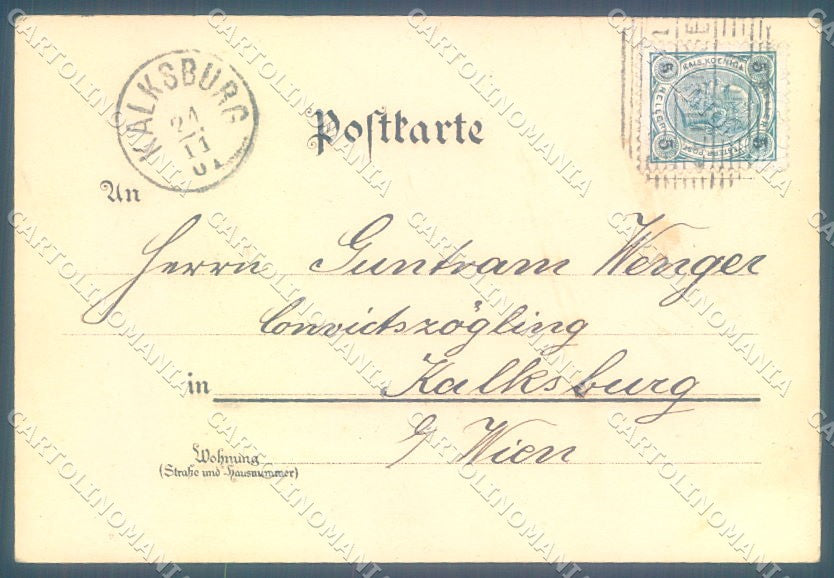 KALKSBURG
24
11
01
Postkarte
5 KAIS. KOENIGL. 5
5 5
An
Herrn Guntram Wenger
Convictszögling
in Kalksburg
b/ Wien
Wohnung
(Straße und Hausnummer)
CARTOLINOMANIA